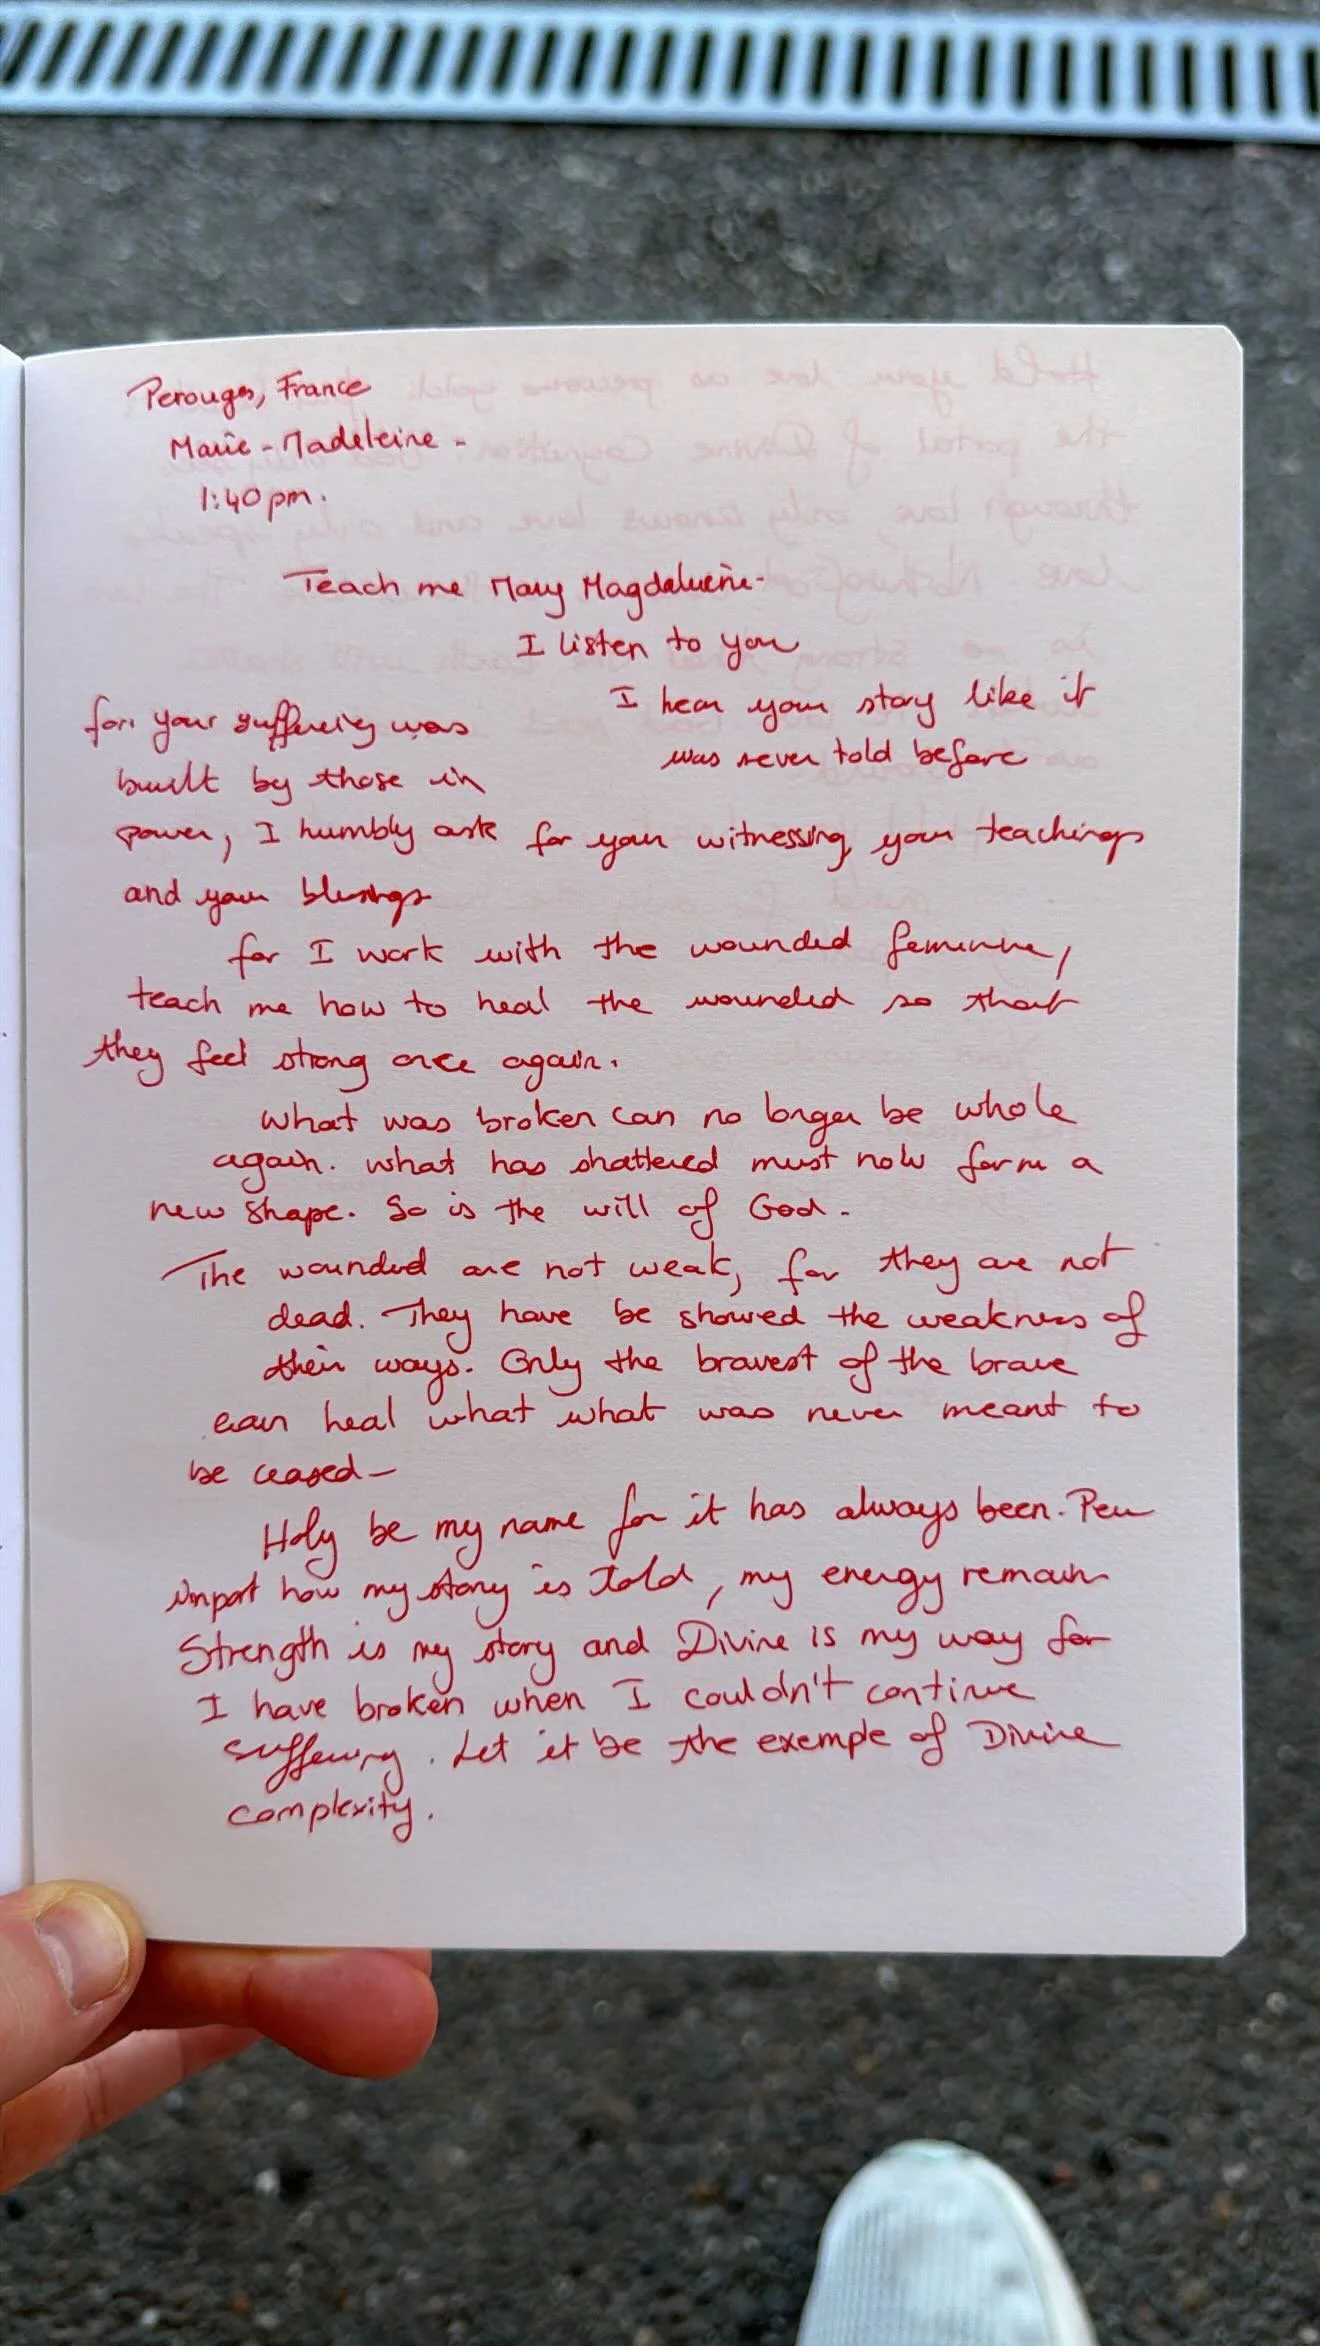 Perouges, France
Marie-Madeleine -
1:40pm.
Teach me Mary Magdaleine-
I listen to you
I hear your story like it
was never told before
for your suffering was
built by those in
power, I humbly ask for your witnessing, your teachings
and your blessings
for I work with the wounded feminine,
teach me how to heal the wounded so that
they feel strong once again.
What was broken can no longer be whole
again. What has shattered must now form a
new shape. So is the will of God.
The wounded are not weak, for they are not
dead. They have be showed the weakness of
their ways. Only the bravest of the brave
can heal what what was never meant to
be ceased -
Holy be my name for it has always been. Peu
import how my story is told, my energy remain
Strength is my story and Divine is my way for
I have broken when I couldn't continue
suffering. Let it be the exemple of Divine
complexity.